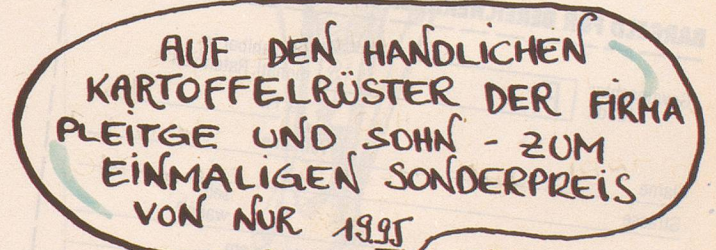 AUF DEN HANDLICHEN
KARTOFFELRÜSTER DER FIRMA
PLEITGE UND SOHN - ZUM
EINMALIGEN SONDERPREIS
VON NUR 19.95